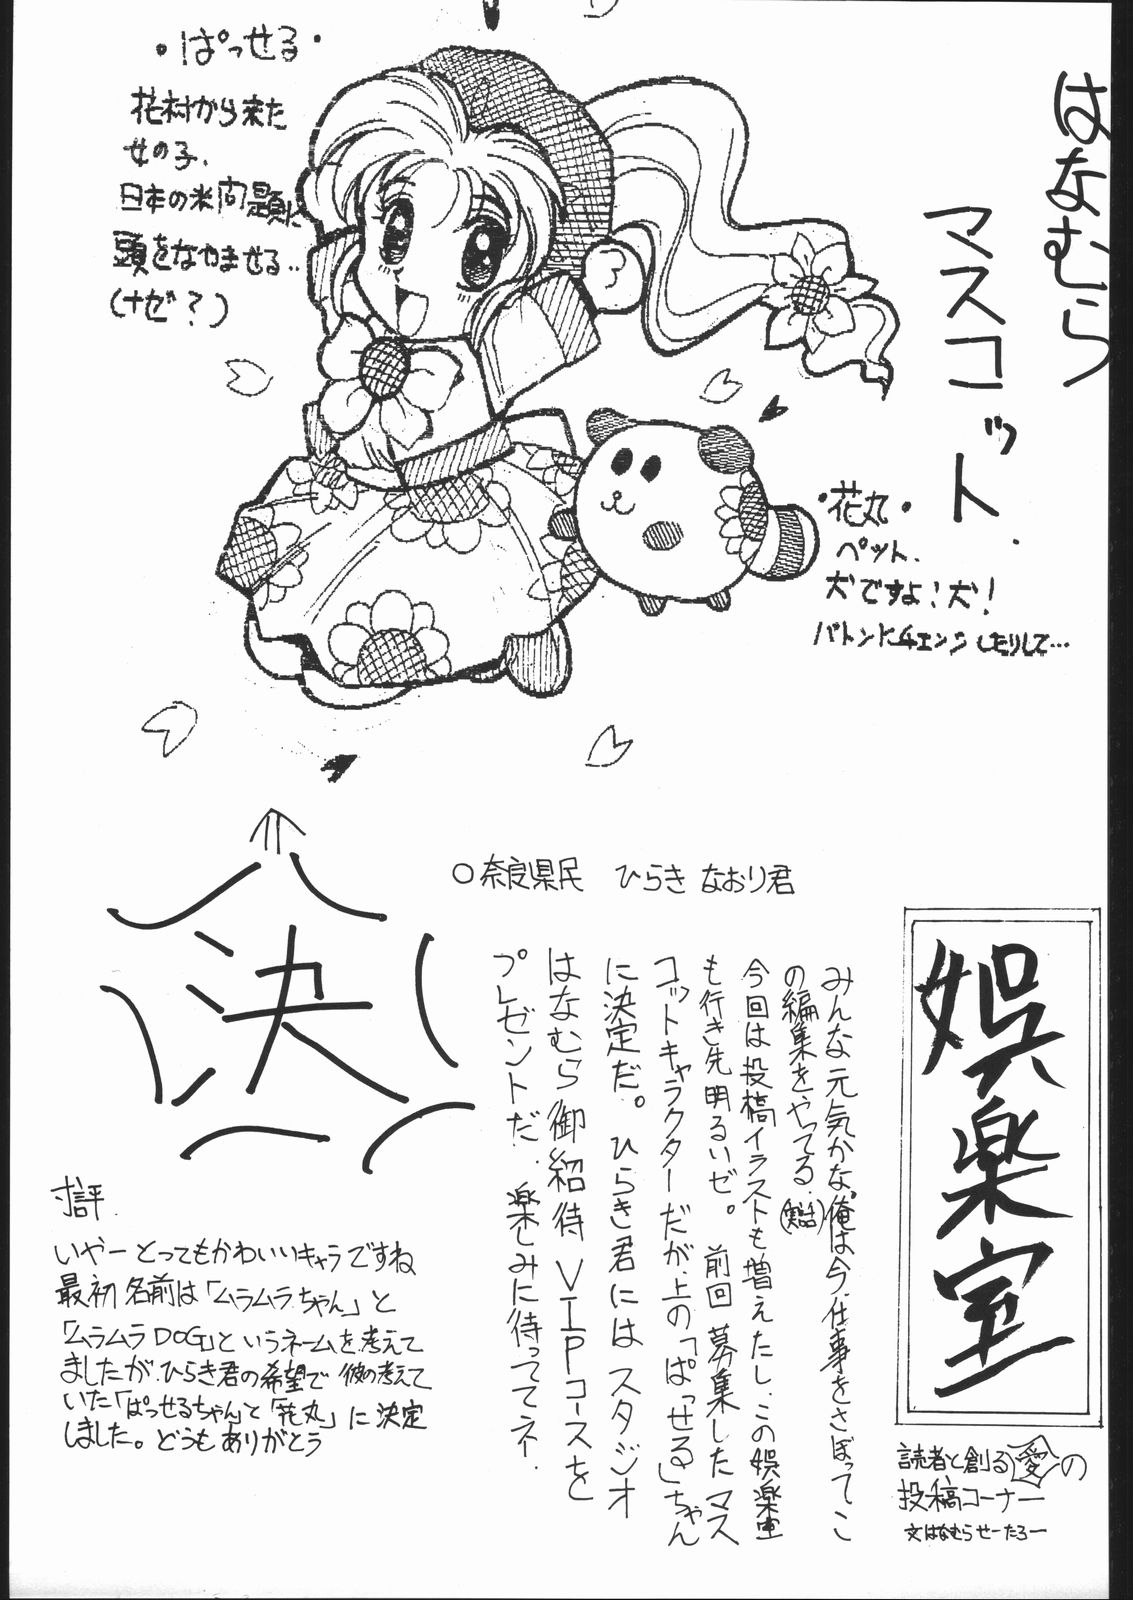 はなむら
マスコット
・ぱっせる・
花村から来た
女の子.
日本の米問題に
頭をなやませる..
(ナゼ?)
・花丸・
ペット.
犬ですよ!犬!
バトンにチェンジしたりして…
決
○奈良県民 ひらき なおり君
娯楽室
読者と創る愛の
投稿コーナー
文はなむらせーたろー
みんな元気かな俺は今、仕事をさぼってこ
の編集をやってる.(実話)
今回は投稿イラストも増えたし、この娯楽室
も行き先明るいぜ。前回募集したマス
コットキャラクターだが、上の「ぱっせる」ちゃん
に決定だ。ひらき君にはスタジオ
はなむら御紹待VIPコースを
プレゼントだ.楽しみに待っててネー.
寸評.
いやーとってもかわいいキャラですね
最初名前は「ムラムラちゃん」と
「ムラムラDOG」というネームを考えて
ましたが、ひらき君の希望で彼の考えて
いた「ぱっせるちゃん」と「花丸」に決定
しました。どうもありがとう